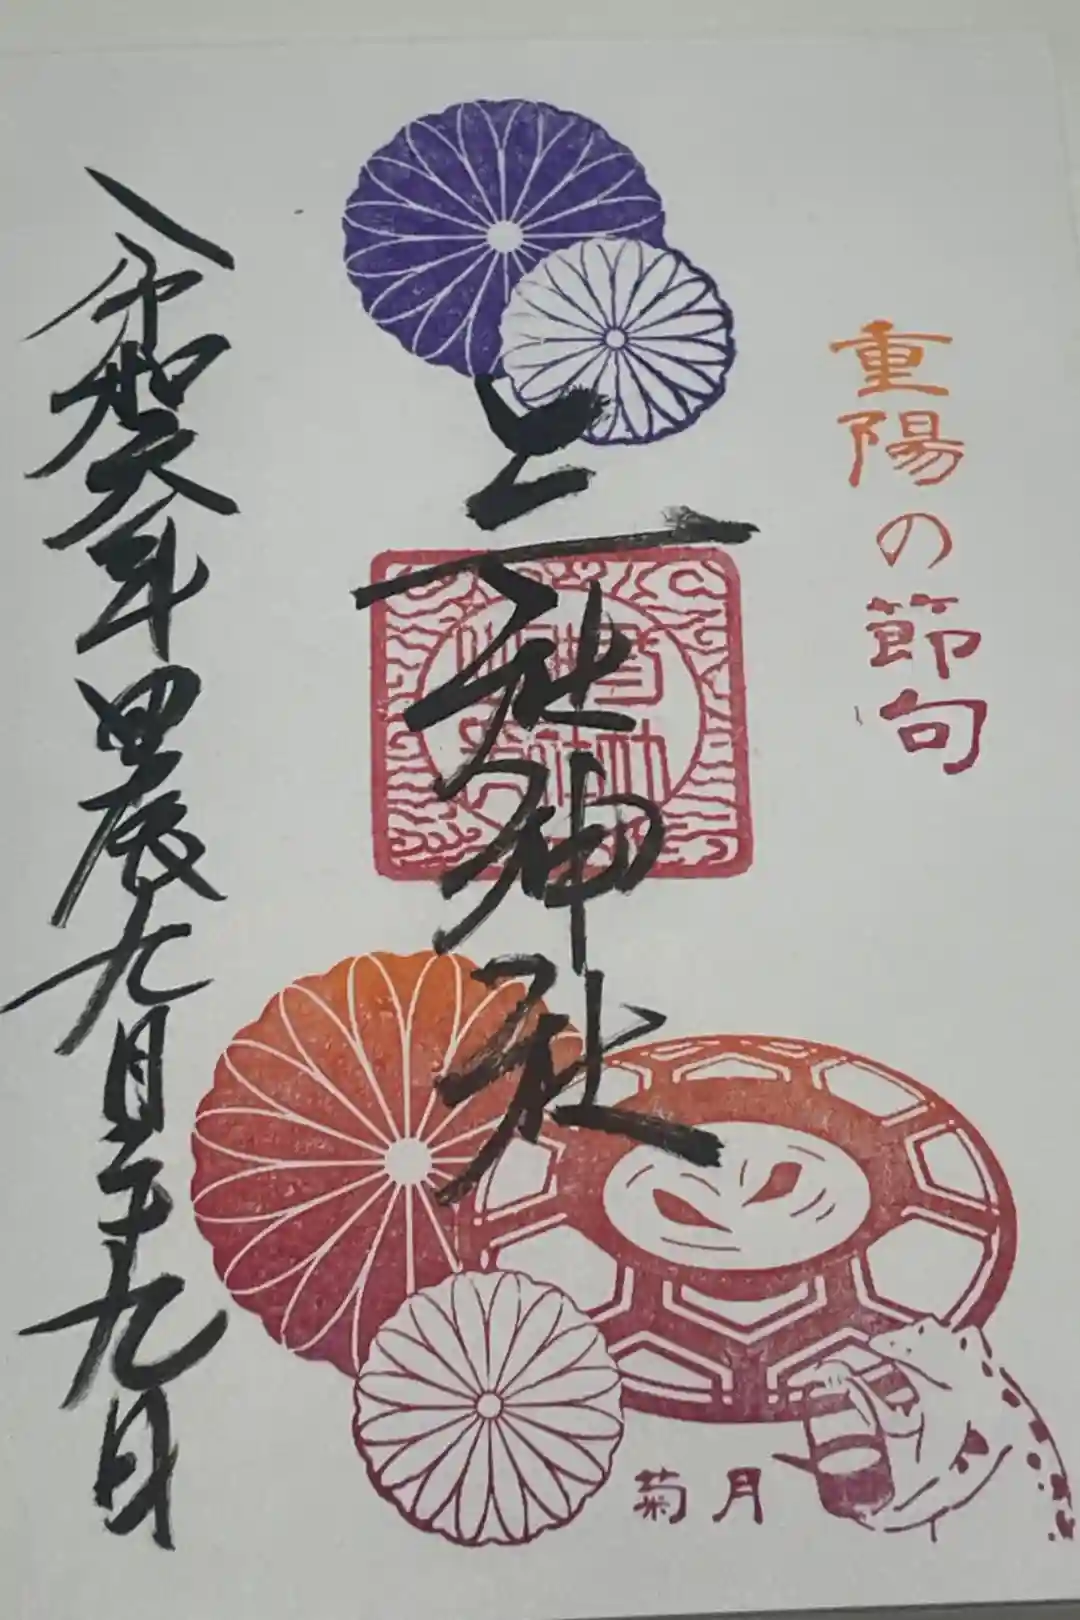 重陽の節句
三社神社
令和六年甲辰九月二十九日
菊月